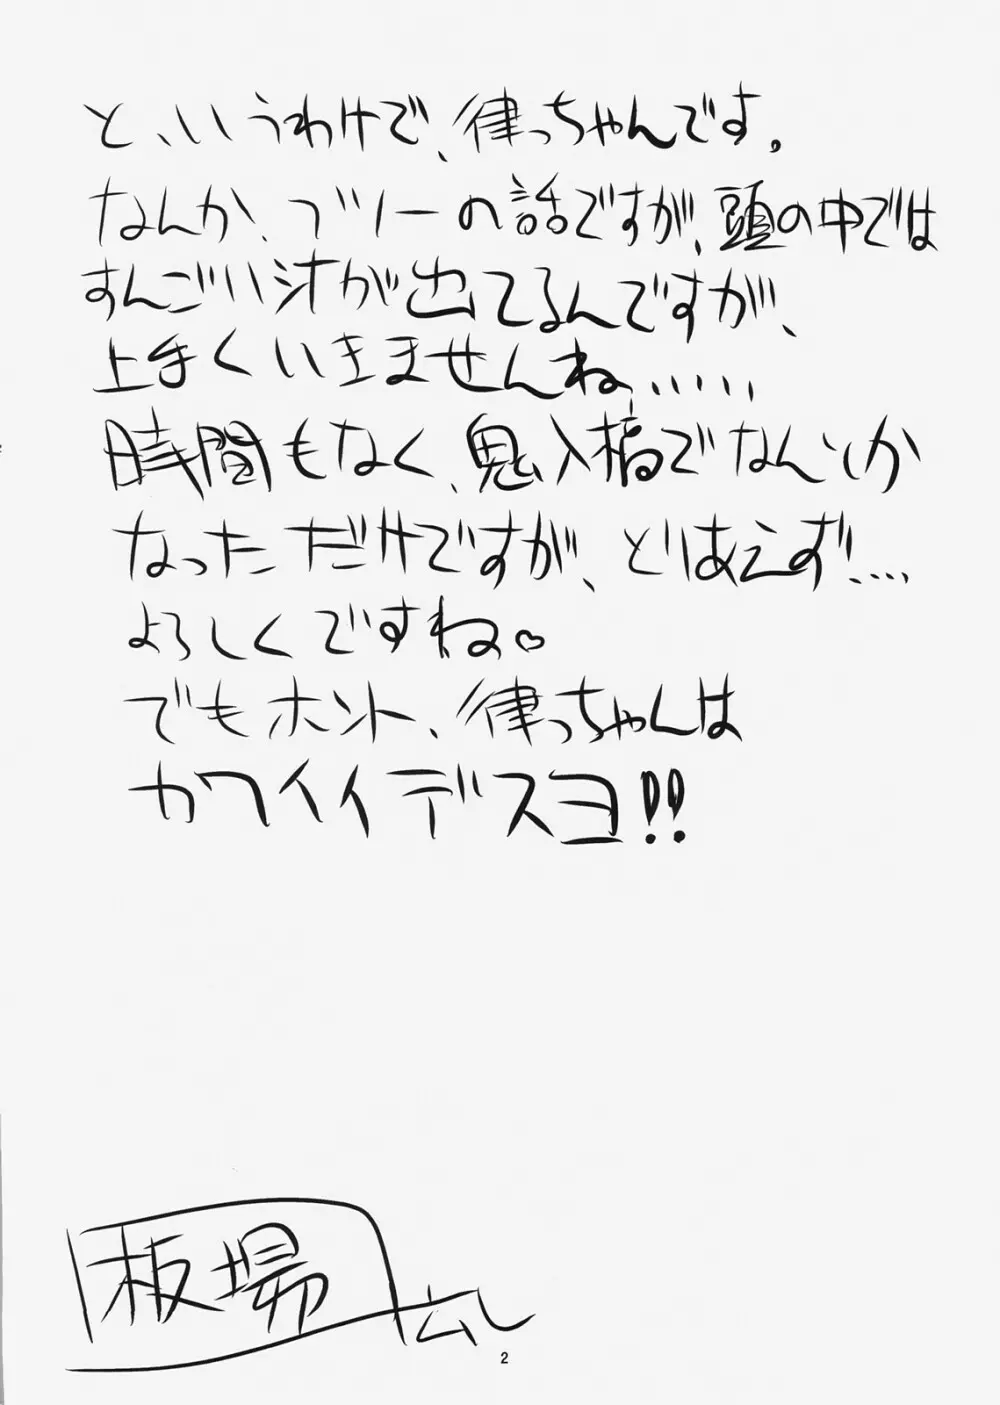 と、いうわけで、律っちゃんです。
なんか、ブツーの話ですが、頭の中では
すんごい汁が出てるんですが、
上手くいきませんね、、、、、、
時間もなく、鬼入稿でなんとか
なっただけですが、とりはえず!、、、、
よろしくですね♡
でもホント、律っちゃんは
カワイイデスヨ!!
板場広し
2